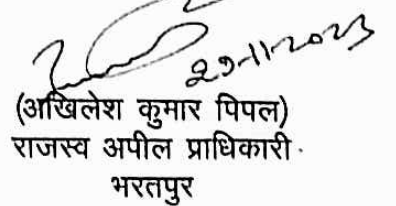 29-11-2023
(अखिलेश कुमार पिपल)
राजस्व अपील प्राधिकारी
भरतपुर